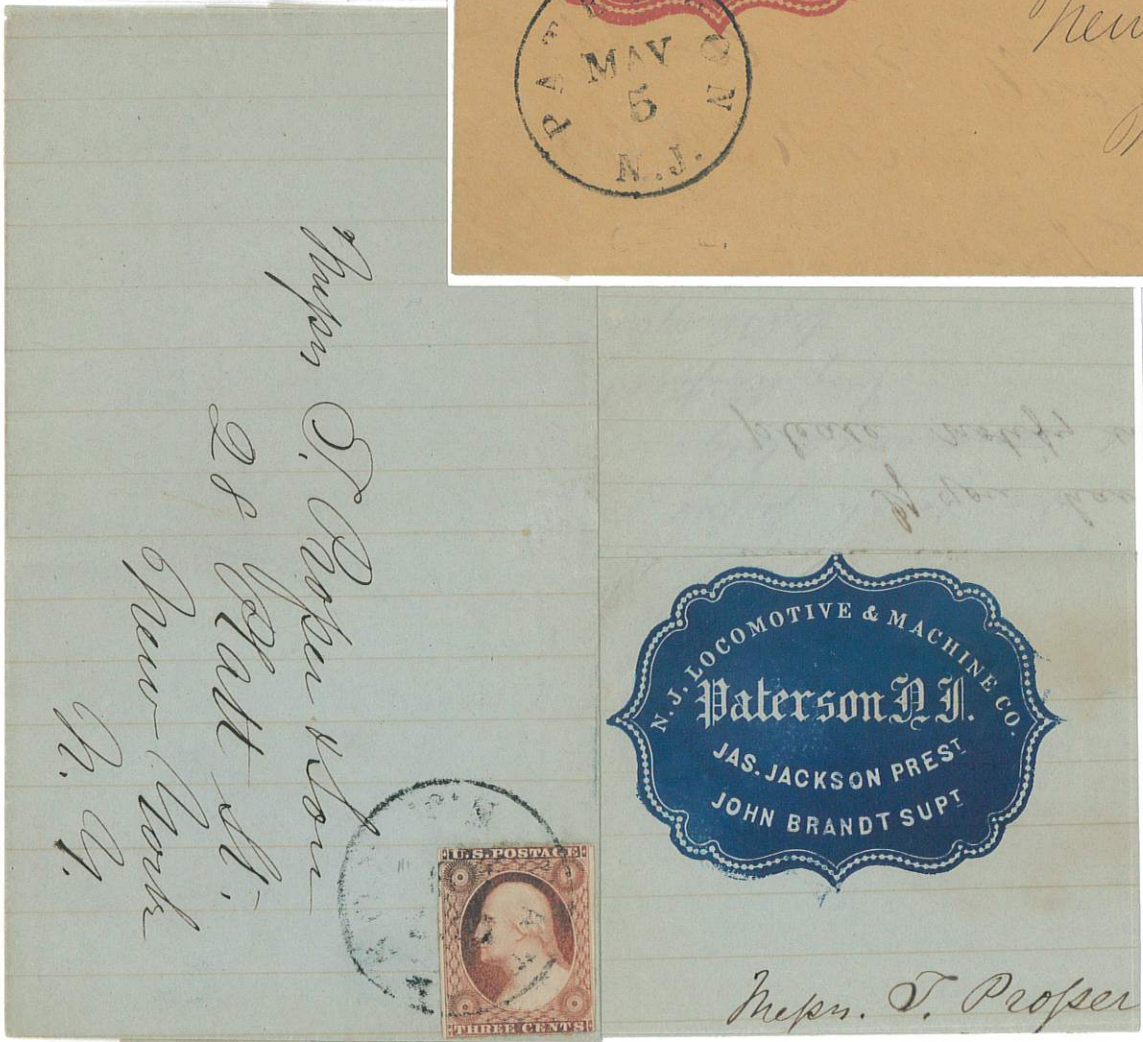 PATERSON
MAY
5
N.J.
New
Messrs T. Prosser & Son
28 Platt St.
New York
N.Y.
please notify
If you have
N.J. LOCOMOTIVE & MACHINE CO.
Paterson N J.
JAS. JACKSON PREST
JOHN BRANDT SUPT
U.S. POSTAGE
THREE CENTS
Messrs. T. Prosser